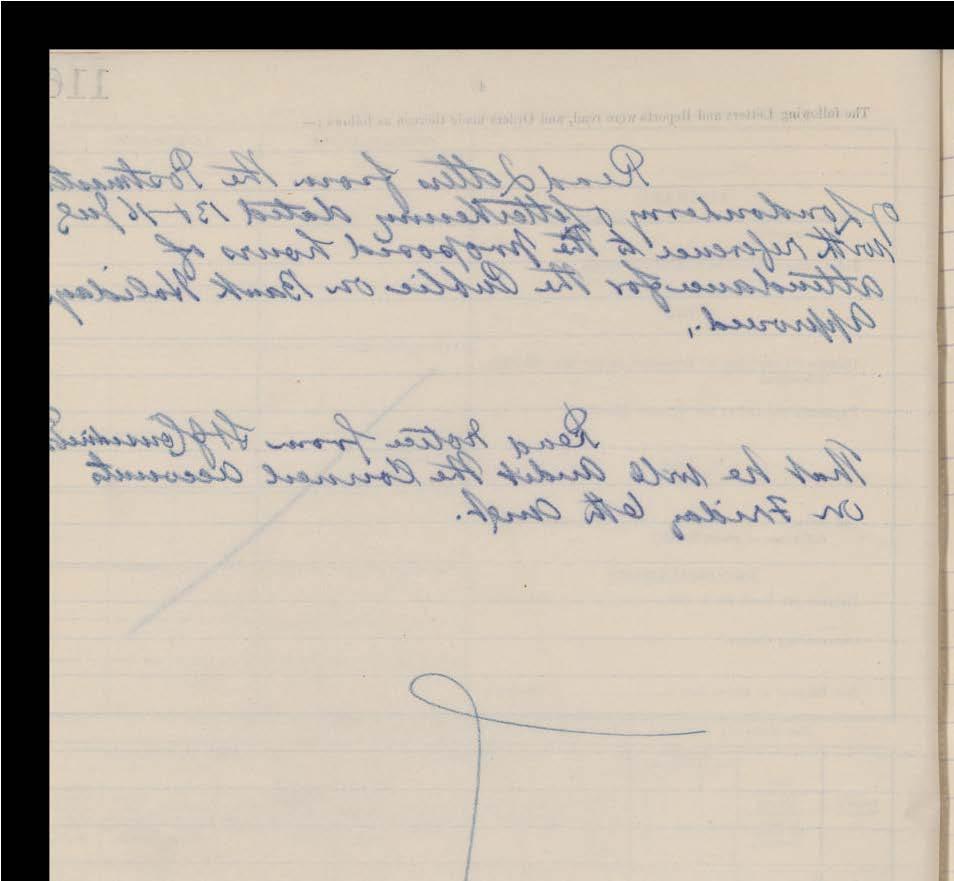 116
4
The following Letters and Reports were read, and Orders made thereon as follows :—
Read Letter from the
Londonderry Letterkenny dated
With reference to the proposed hours of
attendance for the Public on Bank Holiday
Approved.
Read notice from
That he will Audit the Council accounts
on Friday 6th Augt.